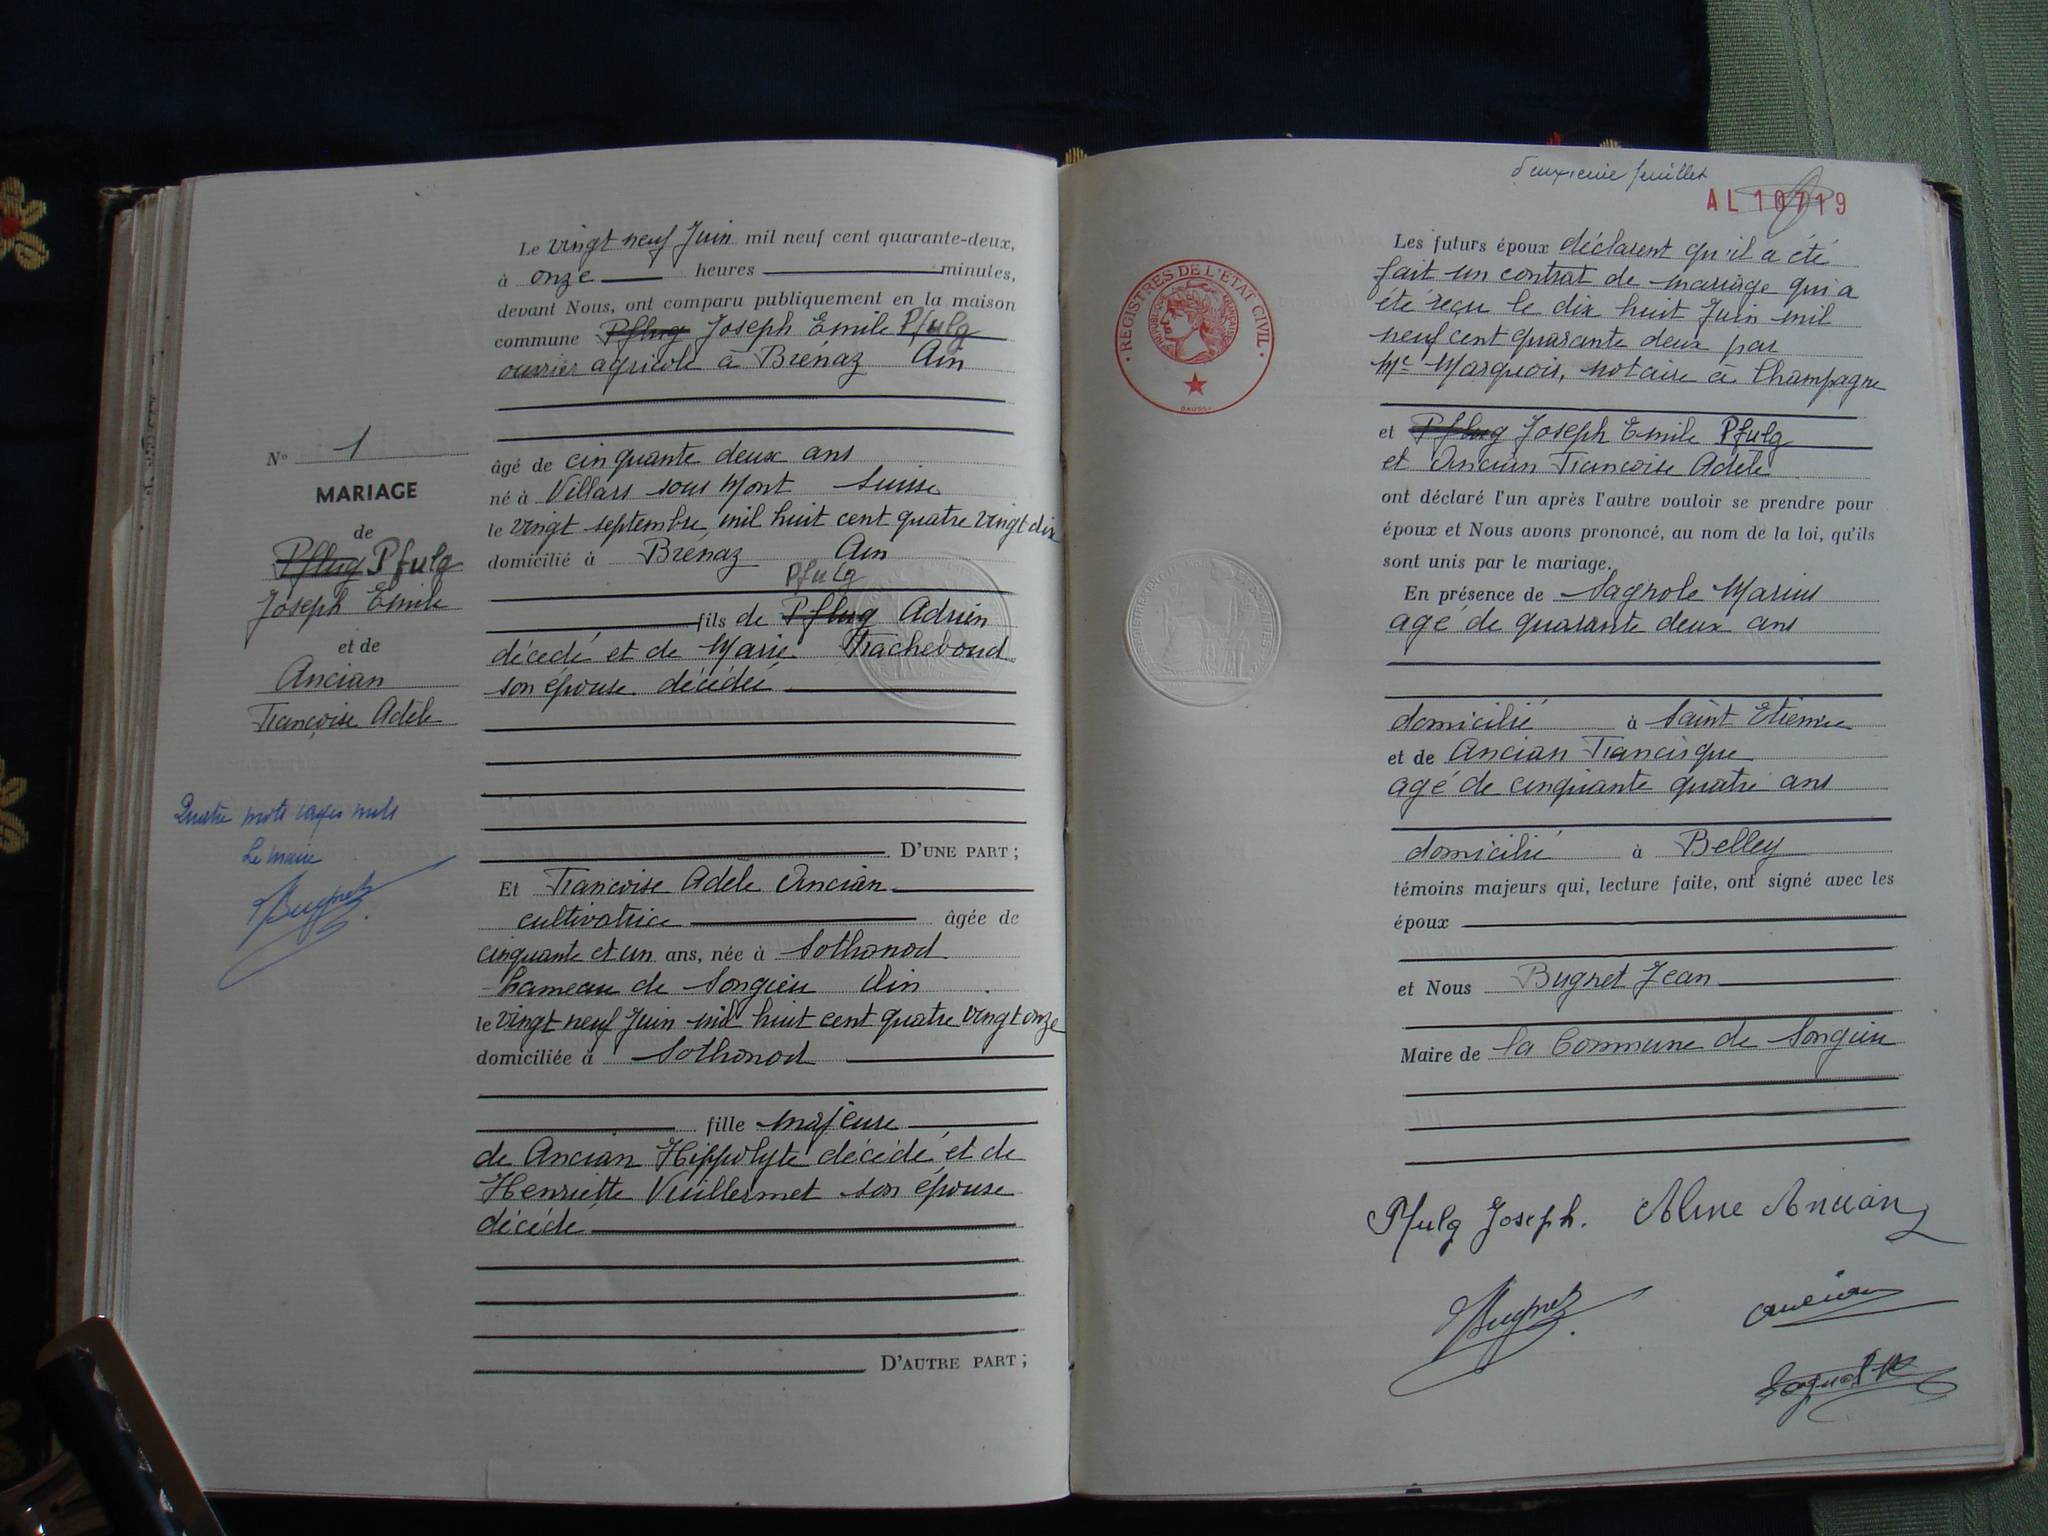 Le vingt neuf Juin mil neuf cent quarante-deux,
à onze heures minutes,
devant Nous, ont comparu publiquement en la maison
commune Pflug Joseph Emile Pfulg
ouvrier agricole à Brénaz Ain
N° 1
MARIAGE
de
Pflug Pfulg
Joseph Emile
et de
Ancian
Françoise Adèle
Quatre mots rayés nuls
Le maire
Bugnet
âgé de cinquante deux ans
né à Villars sous Mont Suisse
le vingt septembre mil huit cent quatre vingt dix
domicilié à Brénaz Ain
Pfulg
fils de Pflug Adrien
décédé et de Marie Tracheboud
son épouse décédée
D'UNE PART ;
Et Françoise Adèle Ancian
cultivatrice âgée de
cinquante et un ans, née à Sothonod
hameau de Songieu Ain
le vingt neuf Juin mil huit cent quatre vingt onze
domiciliée à Sothonod
fille majeure
de Ancian Hippolyte décédé et de
Henriette Vuillermet son épouse
décédé
D'AUTRE PART ;
deuxième feuillet
AL 10719
REGISTRES DE L'ETAT CIVIL
Les futurs époux déclarent qu'il a été
fait un contrat de mariage qui a
été reçu le dix huit Juin mil
neuf cent quarante deux par
Me Marquois, notaire à Champagne
et Pflug Joseph Emile Pfulg
et Ancian Françoise Adèle
ont déclaré l'un après l'autre vouloir se prendre pour
époux et Nous avons prononcé, au nom de la loi, qu'ils
sont unis par le mariage.
En présence de Sagnole Marius
agé de quarante deux ans
domicilié à Saint Etienne
et de Ancian Francisque
agé de cinquante quatre ans
domicilié à Belley
témoins majeurs qui, lecture faite, ont signé avec les
époux
et Nous Bugnet Jean
Maire de la Commune de Songieu
Pfulg Joseph. Aline Ancian
Bugnet
ancian